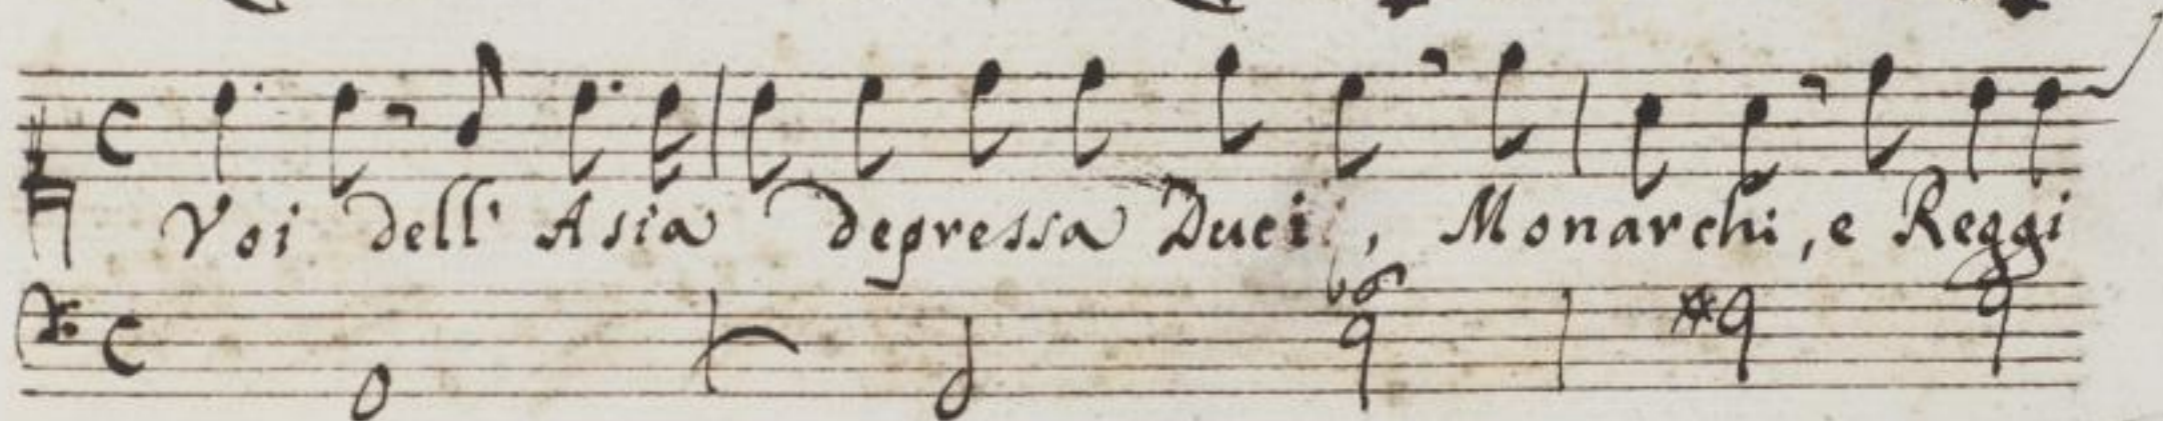 Voi dell' Asia depressa Duci, Monarchi, e Reggi